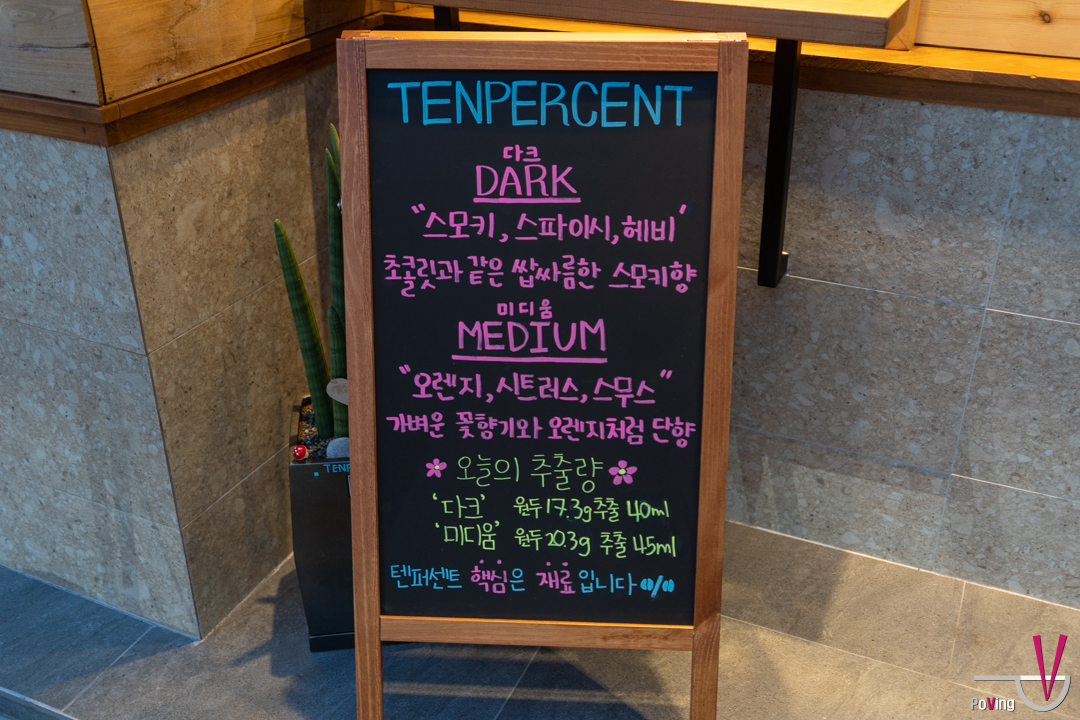 TENPERCENT
다크
DARK
"스모키, 스파이시, 헤비'
초콜릿과 같은 쌉싸름한 스모키향
미디움
MEDIUM
"오렌지, 시트러스, 스무스"
가벼운 꽃향기와 오렌지처럼 단향
오늘의 추출량
'다크' 원두 17.3g 추출 40ml
'미디움' 원두 20.3g 추출 45ml
텐퍼센트 핵심은 재료입니다
TENP
PoVing